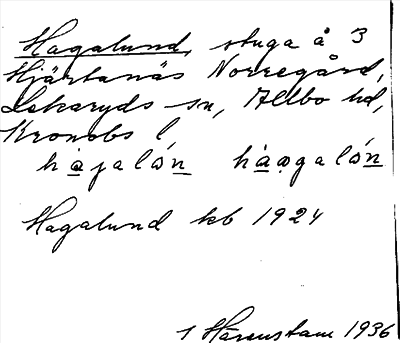 Hagalund, stuga å 3
Hjärtanäs Norregård,
Lekaryds sn, Allbo hd,
Kronobs l
hagalón håogalón
Hagalund kb 1924
1 Härenstam 1936